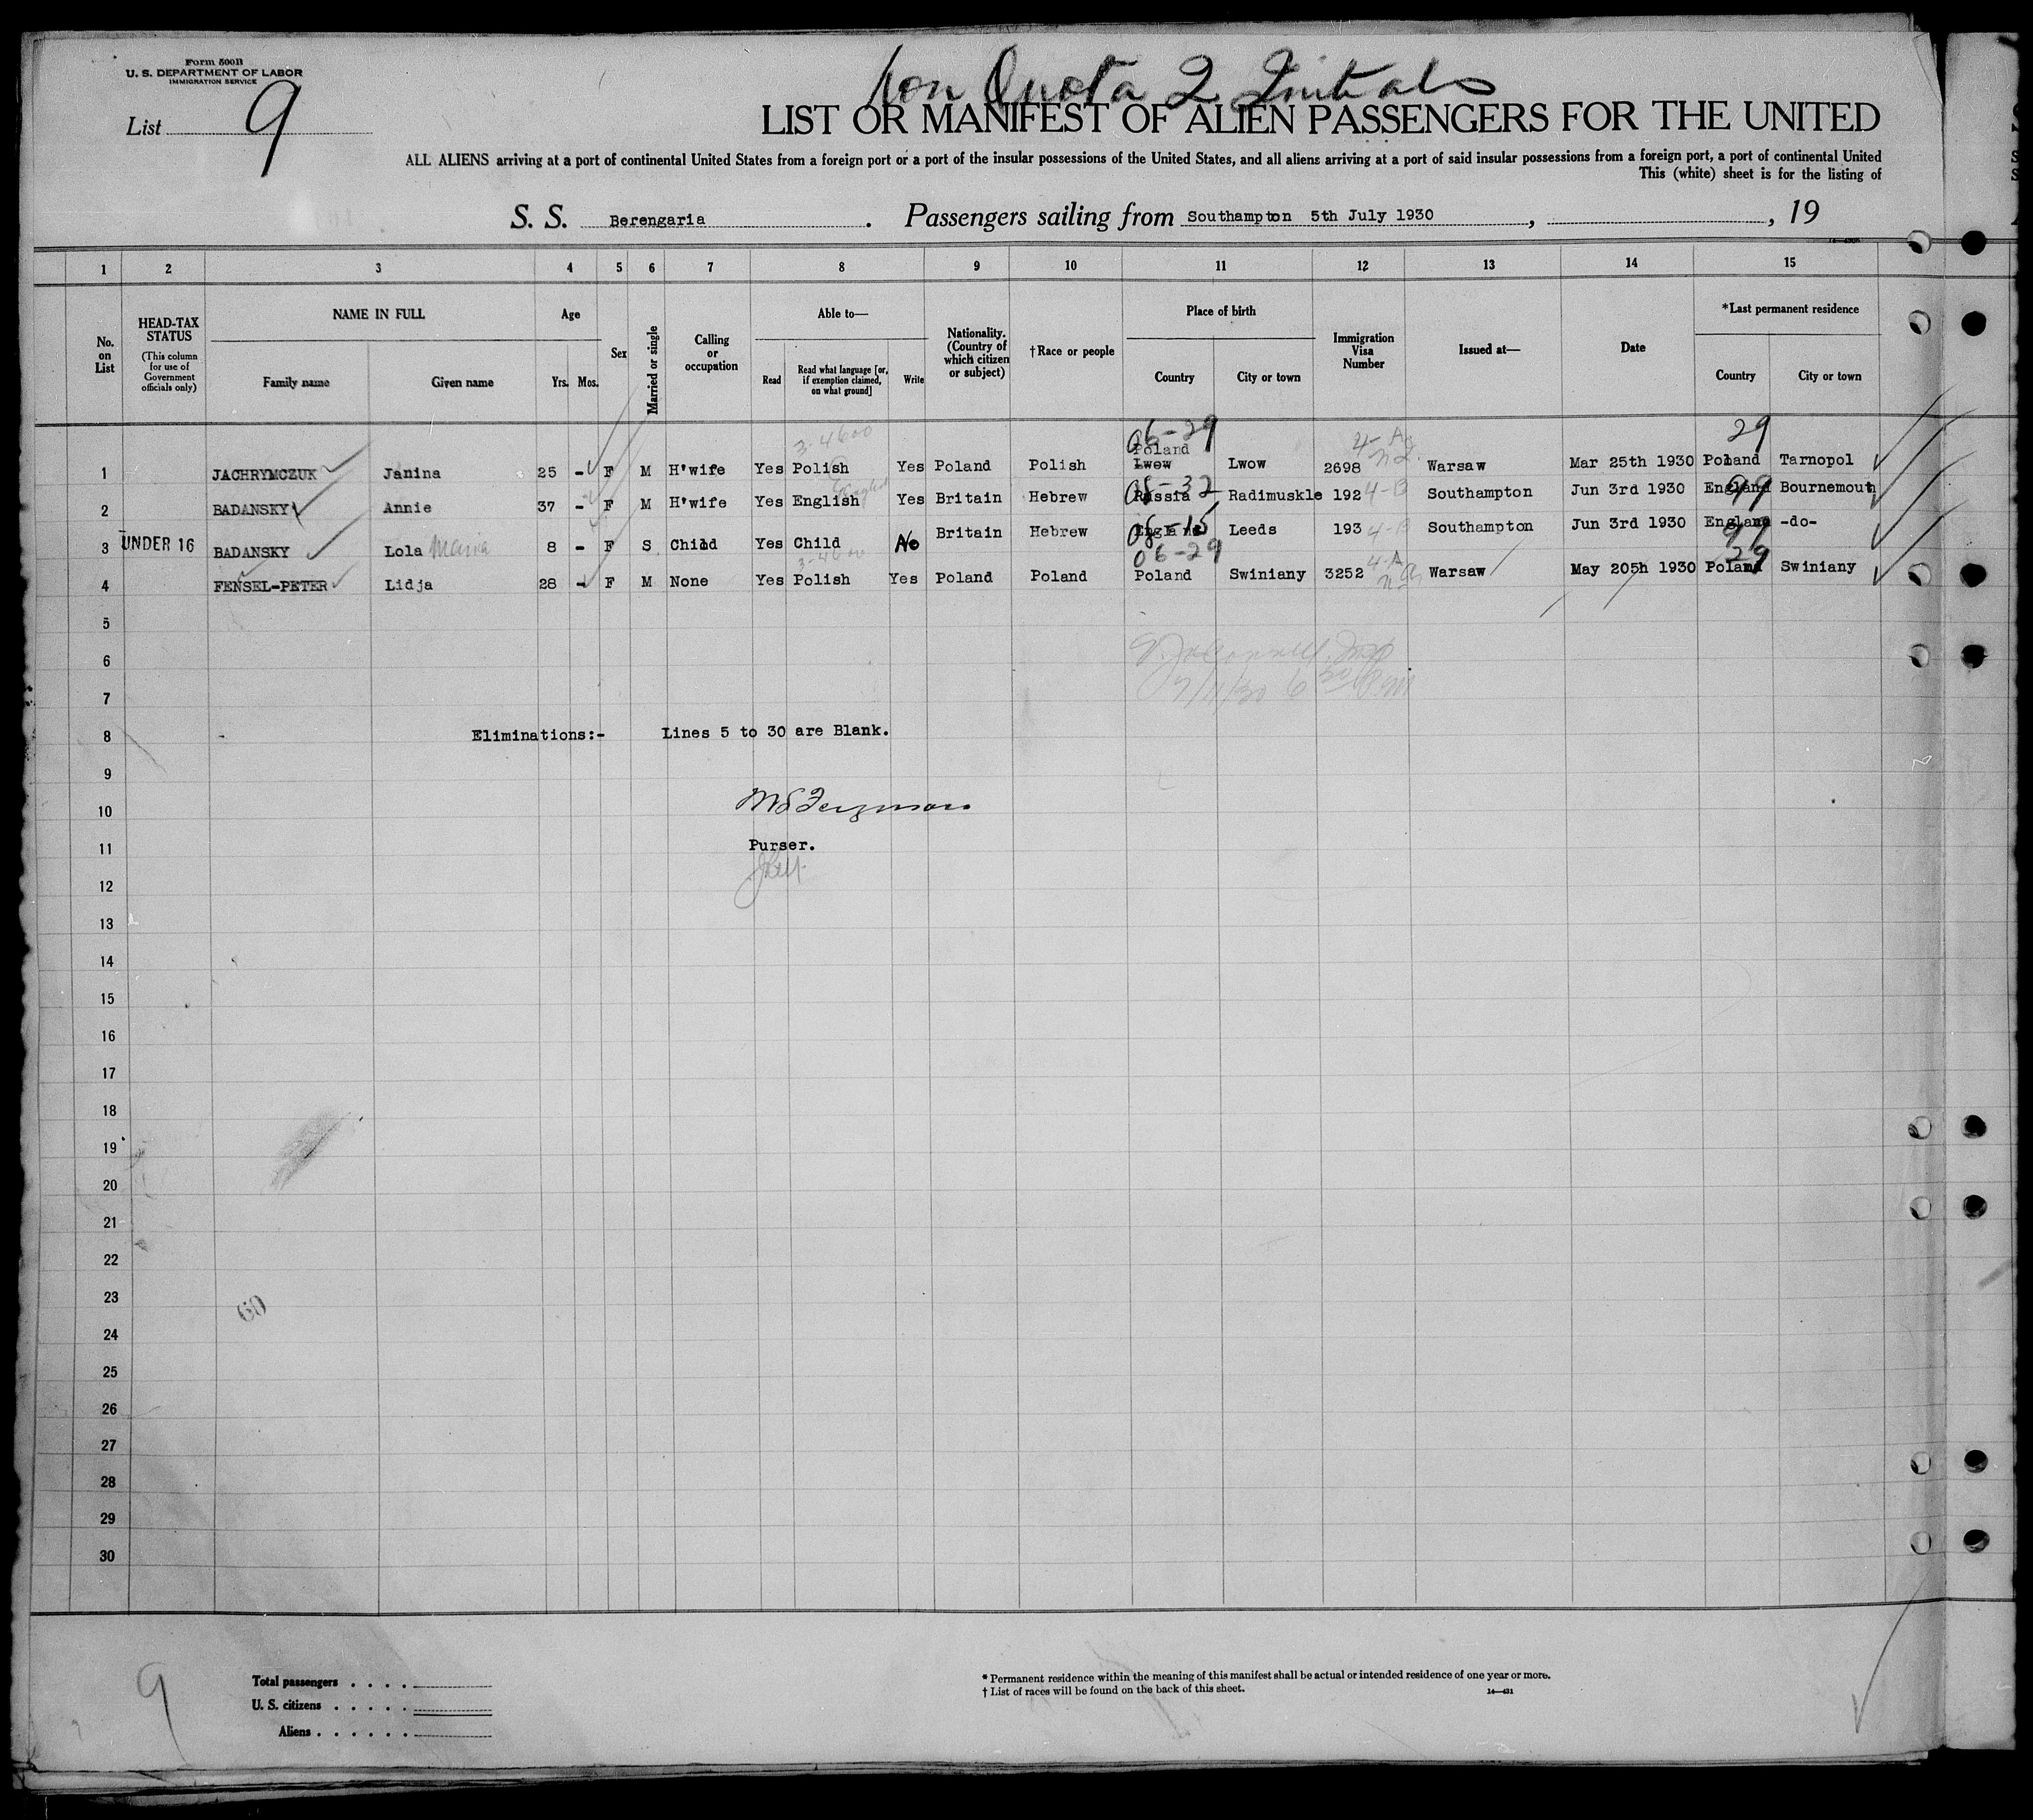 Form 500B
U. S. DEPARTMENT OF LABOR
IMMIGRATION SERVICE
Non Quota 2 Initials
List 9
LIST OR MANIFEST OF ALIEN PASSENGERS FOR THE UNITED
ALL ALIENS arriving at a port of continental United States from a foreign port or a port of the insular possessions of the United States, and all aliens arriving at a port of said insular possessions from a foreign port, a port of continental United
This (white) sheet is for the listing of
S. S. Berengaria. Passengers sailing from Southampton 5th July 1930, , 19
1 2 3 4 5 6 7 8 9 10 11 12 13 14 15
No. on List
HEAD-TAX STATUS (This column for use of Government officials only)
NAME IN FULL
Family name Given name
Age
Yrs. Mos.
Sex
Married or single
Calling or occupation
Able to—
Read Read what language [or, if exemption claimed, on what ground] Write
Nationality. (Country of which citizen or subject)
†Race or people
Place of birth
Country City or town
Immigration Visa Number
Issued at—
Date
*Last permanent residence
Country City or town
3-4600 06-29 4-A 29
Poland
1 JACHRYMCZUK Janina 25 - F M H'wife Yes Polish Yes Poland Polish Lwow Lwow 2698 Warsaw Mar 25th 1930 Poland Tarnopol
English 08-32 99
2 BADANSKY Annie 37 - F M H'wife Yes English Yes Britain Hebrew Russia Radimuskle 192 4-B Southampton Jun 3rd 1930 England Bournemouth
08-15 99
3 UNDER 16 BADANSKY Lola 8 - F S Child Yes Child No Britain Hebrew England Leeds 193 4-B Southampton Jun 3rd 1930 England -do-
3-4600 06-29 4-A 29
4 FENSEL-PETER Lidja 28 - F M None Yes Polish Yes Poland Poland Poland Swiniany 3252 Warsaw May 205h 1930 Poland Swiniany
5
6
7 7/11/30 6
8 Eliminations:- Lines 5 to 30 are Blank.
9
10
11 Purser.
12
13
14
15
16
17
18
19
20
21
22
23
60
24
25
26
27
28
29
30
9
Total passengers . . . .
U. S. citizens . . . . .
Aliens . . . . . .
* Permanent residence within the meaning of this manifest shall be actual or intended residence of one year or more.
† List of races will be found on the back of this sheet.
14—431